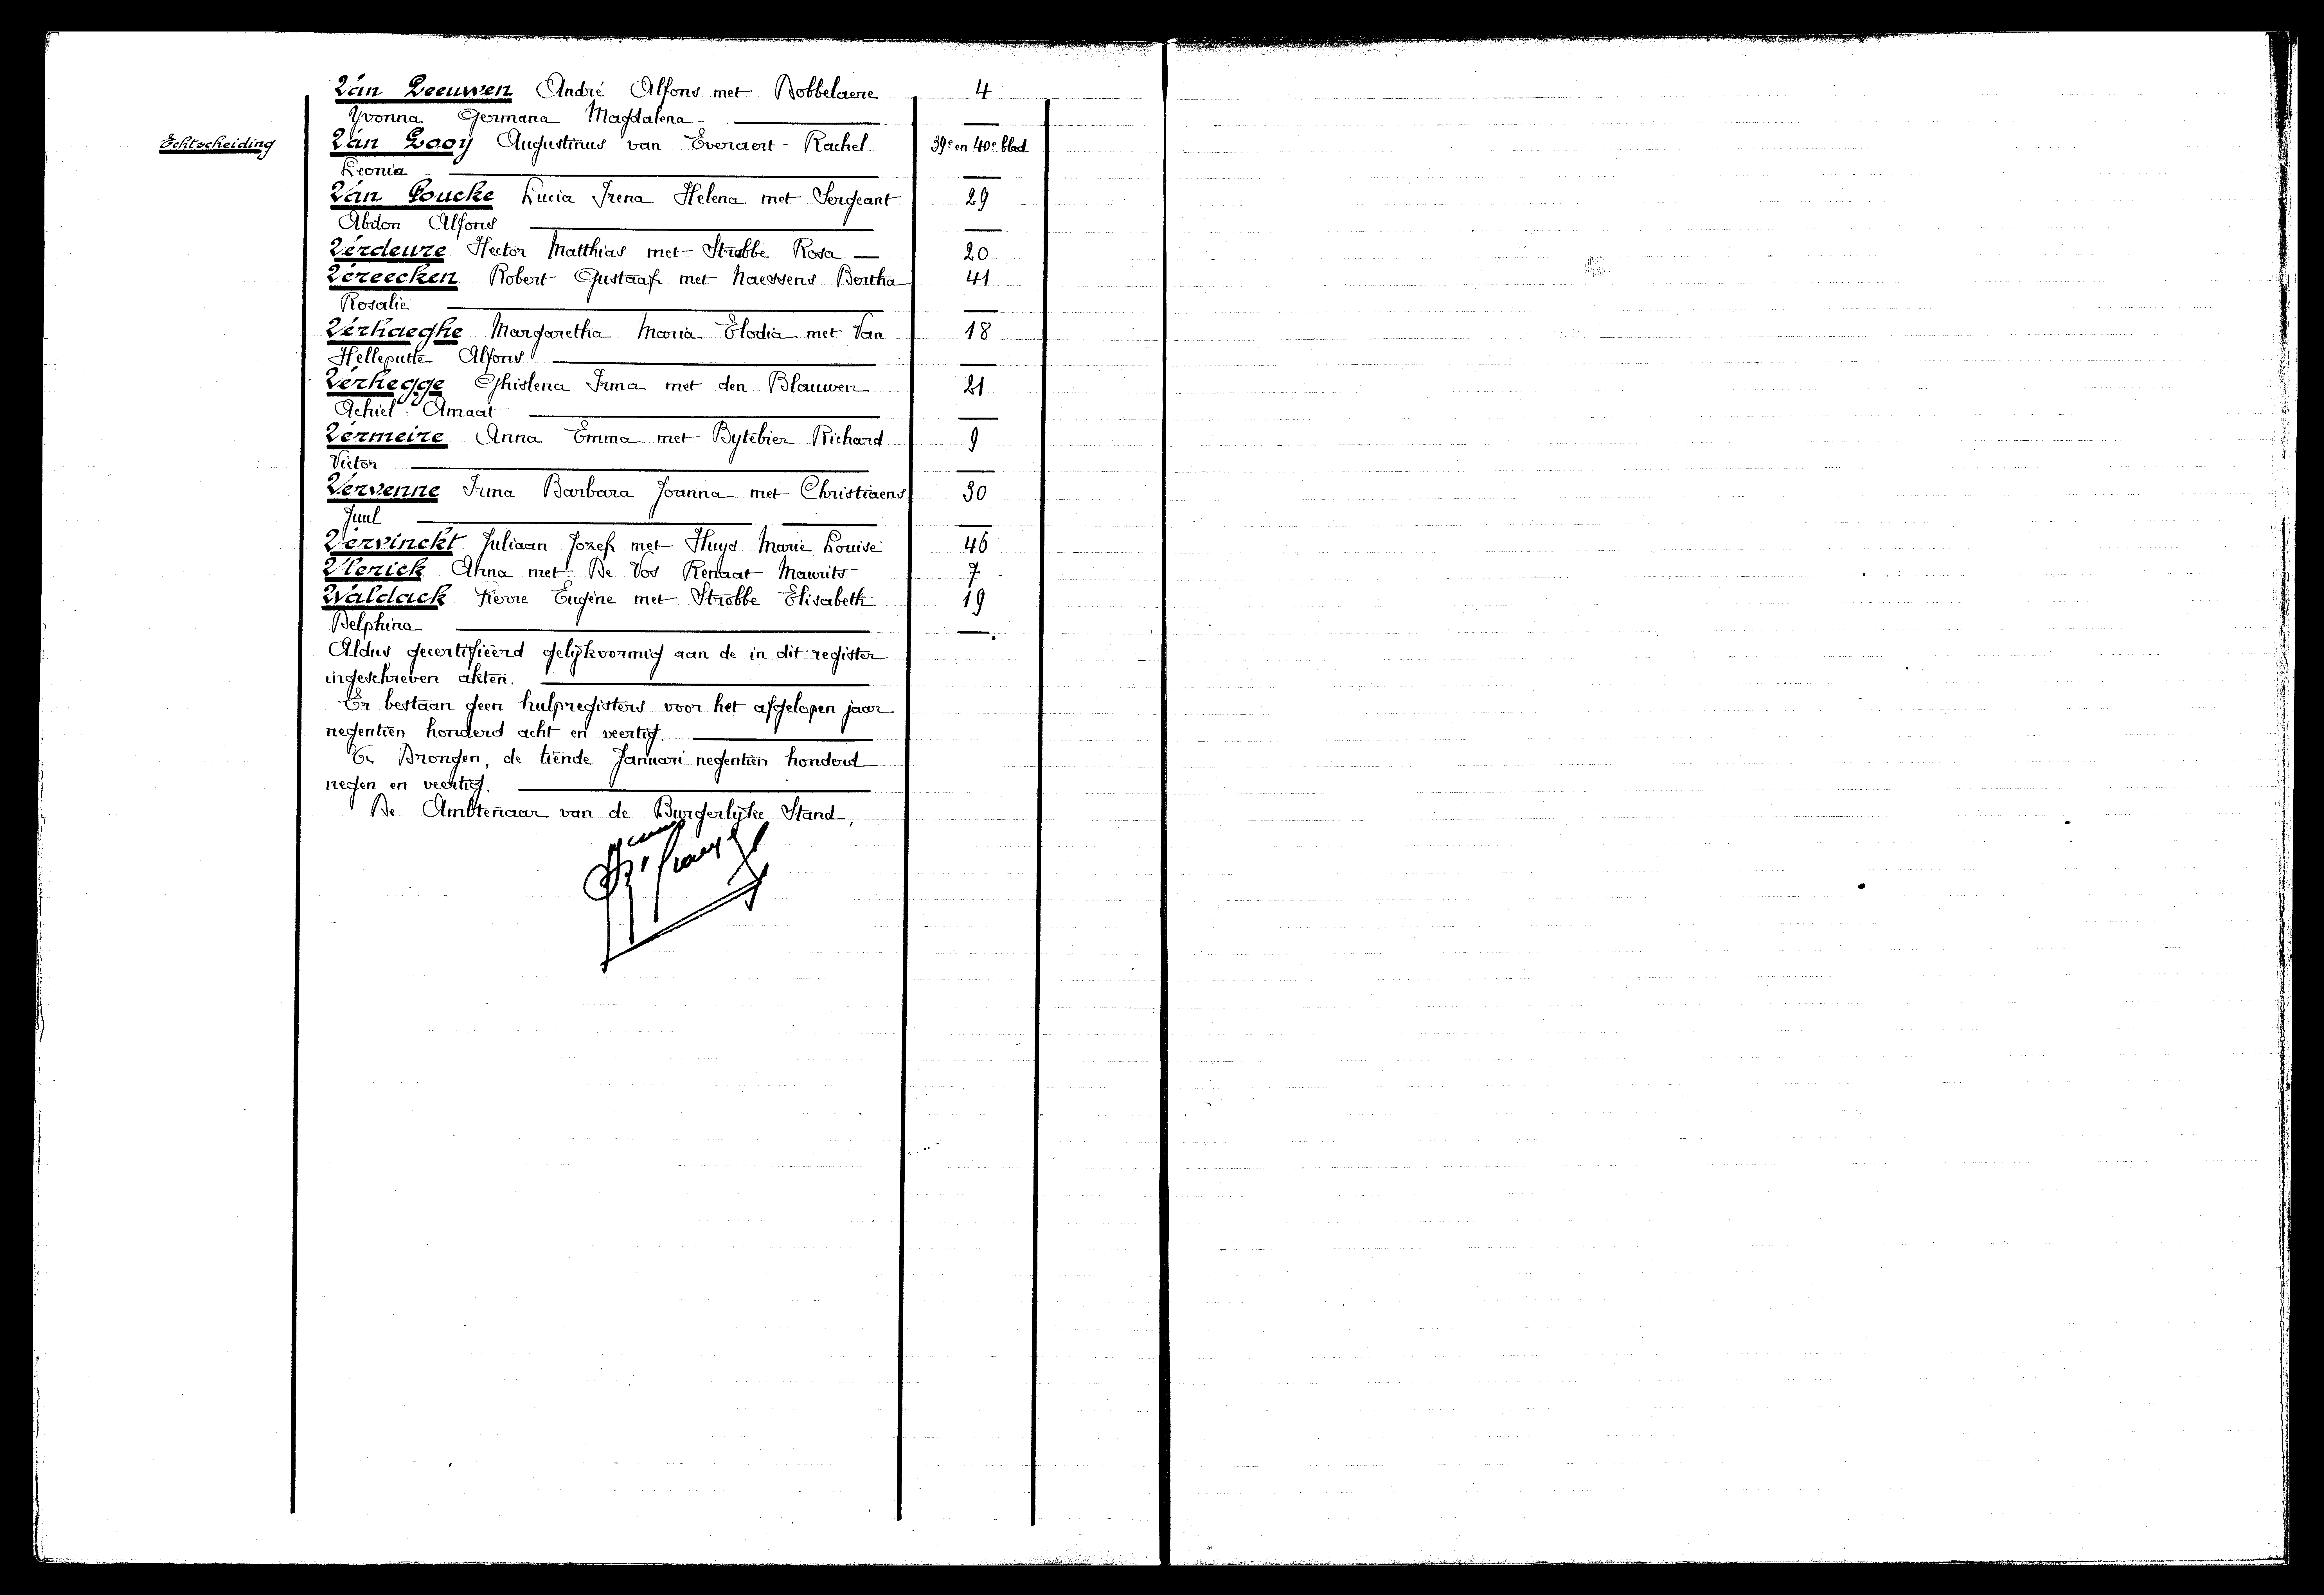 Van Leeuwen André Alfons met Dobbelaere 4
Yvonna Germana Magdalena
Echtscheiding Van Looy Augustinus van Everaert Rachel 39e en 40e blad
Leonia
Van Loucke Lucia Irena Helena met Sergeant 29
Abdon Alfons
Verdeure Hector Matthias met Strobbe Rosa — 20
Vereecken Robert Gustaaf met Naessens Bertha 41
Rosalie
Verhaeghe Margaretha Maria Elodia met Van 18
Helleputte Alfons
Verhegge Ghislena Irma met den Blauwen 21
Achiel Amaat
Vermeire Anna Emma met Bytebier Richard 9
Victor
Vervenne Irma Barbara Joanna met Christiaens 30
Juul
Vervinckt Juliaan Jozef met Huys Marie Louise 46
Vlerick Anna met De Vos Renaat Maurits 7
Waldack Pierre Eugène met Strobbe Elisabeth 19
Delphina
Aldus gecertifiëerd gelijkvormig aan de in dit register
ingeschreven akten.
Er bestaan geen hulpregisters voor het afgelopen jaar
negentien honderd acht en veertig.
Te Drongen, de tiende Januari negentien honderd
negen en veertig.
De Ambtenaar van de Burgerlijke Stand,